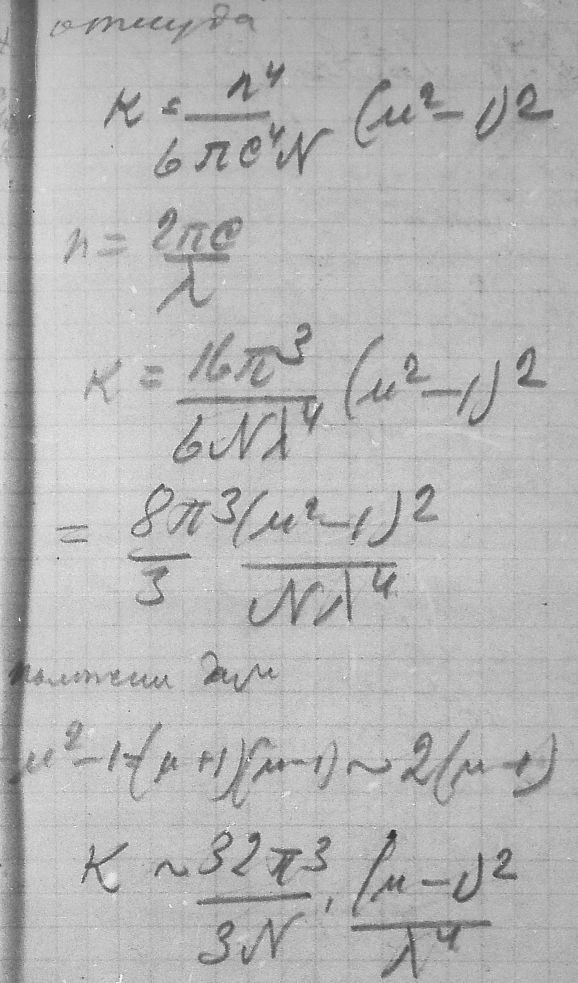 откуда
K = n⁴ / 6πc⁴N (μ² – 1)²
n = 2πc / λ
K = 16π³ / 6Nλ⁴ (μ² – 1)²
= 8π³ / 3 (μ² – 1)² / Nλ⁴
μ² – 1 = (μ + 1)(μ – 1) ~ 2(μ – 1)
K ~ 32π³ / 3N · (μ – 1)² / λ⁴